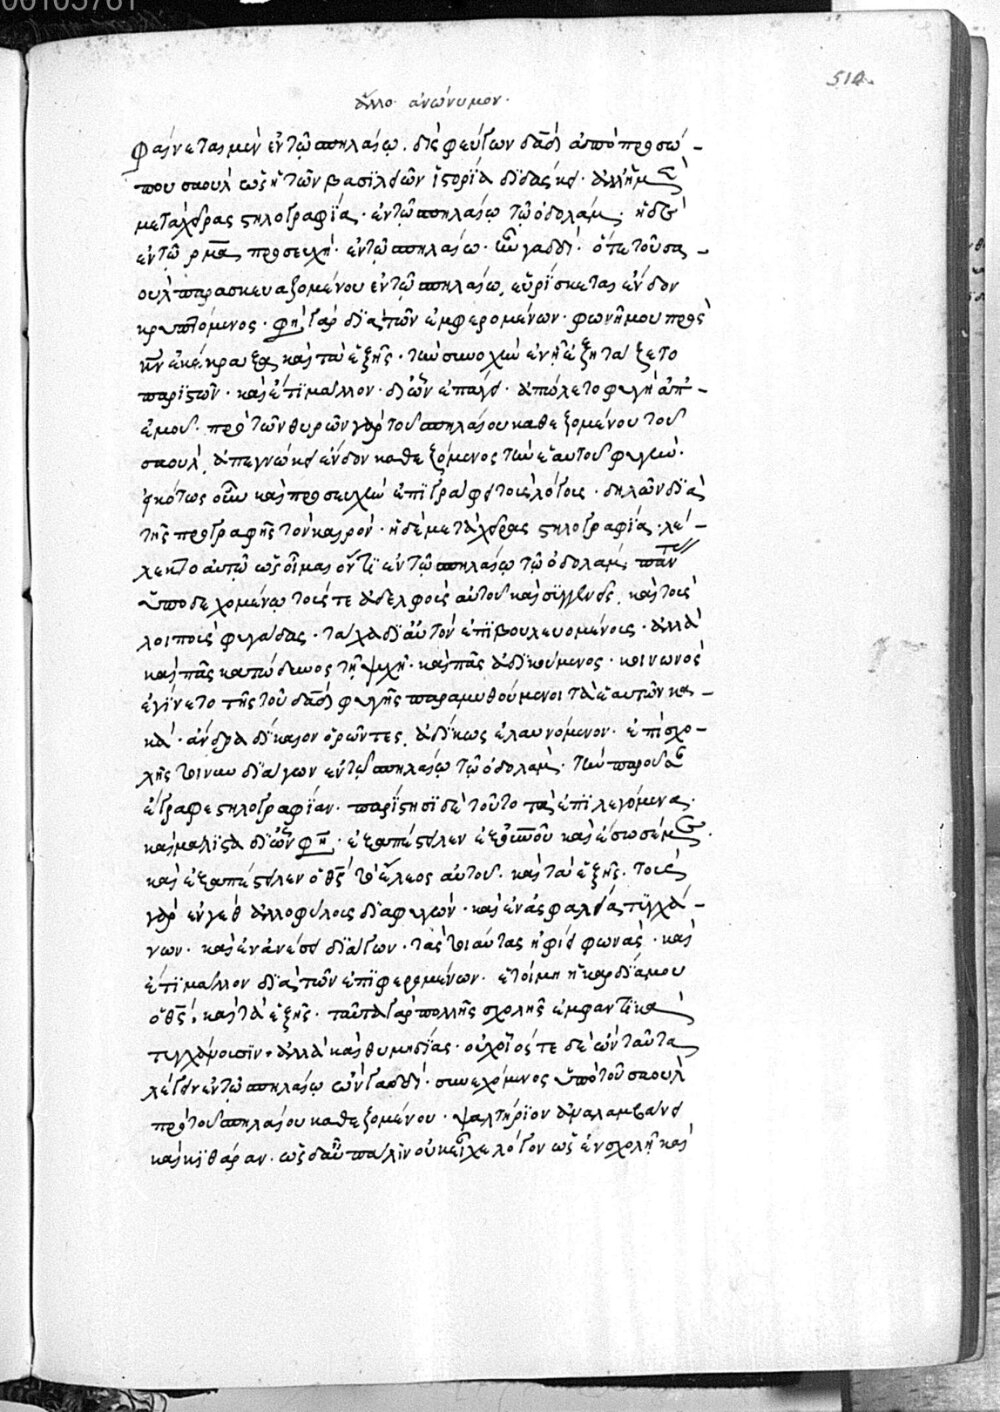 00105781
514
ἄλλο ἀνώνυμον.
φαίνεται μὲν ἐν τῷ σπηλαίῳ. δὶς φεύγων δαδ ἀπὸ προσώ-
που σαοὺλ ὡς ἡ τῶν βασιλειῶν ἱστορία διδάσκει. ἀλλ' ἡ μὲν
μετὰ χεῖρας στηλογραφία. ἐν τῷ σπηλαίῳ τῷ ὀδολάμ. ἡ δὲ
ἐν τῷ ρμα προσευχή. ἐν τῷ σπηλαίῳ. ἐν γαδδί. ὅτε τοῦ σα-
οὺλ παρασκευαζομένου ἐν τῷ σπηλαίῳ, εὑρίσκεται ἔνδον
κρυπτόμενος. φη γὰρ διὰ τῶν ἐμφερομένων. φωνῇ μου πρὸς
κν ἐκέκραξα καὶ τὰ ἑξῆς. τὴν συνοχὴν ἐν ᾗ ἐξητάζετο
παριστῶν. καὶ ἔτι μᾶλλον. δι' ὧν ἐπάγει. ἀπώλετο φυγὴ ἀπ'-
ἐμοῦ. πρὸ τῶν θυρῶν γὰρ τοῦ σπηλαίου καθεζομένου τοῦ
σαοὺλ, ἀπεγνώκει ἔνδον καθεζόμενος τὴν ἑαυτοῦ φυγήν.
εἰκότως οὖν καὶ προσευχὴν ἐπιγράφει τοὺς λόγους. δηλῶν διὰ
τῆς προγραφῆς τὸν καιρόν. ἡ δὲ μετὰ χεῖρας στηλογραφία. λέ-
λεκτο αὐτῷ ὡς οἶμαι ὄντι ἐν τῷ σπηλαίῳ τῷ ὀδολάμ, παντ
ὑποδεχομένῳ τούς τε ἀδελφοὺς αὐτοῦ καὶ συγγενεῖς. καὶ τοὺς
λοιποὺς φυγάδας. τάχα δι' αὐτὸν ἐπιβουλευομένους. ἀλλὰ
καὶ πᾶς κατώδυνος τῇ ψυχῇ. καὶ πᾶς ἀδικούμενος. κοινωνὸς
ἐγίνετο τῆς τοῦ δαδ φυγῆς παραμυθούμενοι τὰ ἑαυτῶν κα-
κά. ἄνδρα δίκαιον ὁρῶντες, ἀδίκως ἐλαυνόμενον. ἐπὶ σχο-
λῆς τοίνυν διάγων ἐν τῷ σπηλαίῳ τῷ ὀδολάμ. τὴν παροῦσαν
ἔγραφε στηλογραφίαν. παρίστησι δὲ τοῦτο τὰ ἐπιλεγόμενα.
καὶ μάλιστα δι' ὧν φη. ἐξαπέστειλεν ἐξ οὐνοῦ καὶ ἔσωσέ με.
καὶ ἐξαπέστειλεν ὁ θς τὸ ἔλεος αὐτοῦ. καὶ τὰ ἑξῆς. τοὺς
γὰρ ἐν γὲθ ἀλλοφύλους διαφυγών. καὶ ἐν ἀσφαλείᾳ τυγχά-
νων. καὶ ἐν ἀνέσει διάγων. τὰς τοιαύτας ἠφίει φωνάς. καὶ
ἔτι μᾶλλον διὰ τῶν ἐπιφερομένων. ἑτοίμη ἡ καρδία μου
ὁ θς, καὶ τὰ ἑξῆς. ταῦτα γὰρ πολλῆς σχολῆς ἐμφαντικὰ
τυγχάνουσιν. ἀλλὰ καὶ θυμηδίας. οὐχ οἷός τε δὲ ὢν ταῦτα
λέγειν ἐν τῷ σπηλαίῳ ὢν γαδδί. συνεχόμενος ὑπὸ τοῦ σαοὺλ
πρὸ τοῦ σπηλαίου καθεζομένου. ψαλτήριον ἀναλαμβάνει
καὶ κιθάραν. ὡς δ' ἂν πάλιν οὐκ εἶχε λόγον ὡς ἐν σχολῇ καὶ